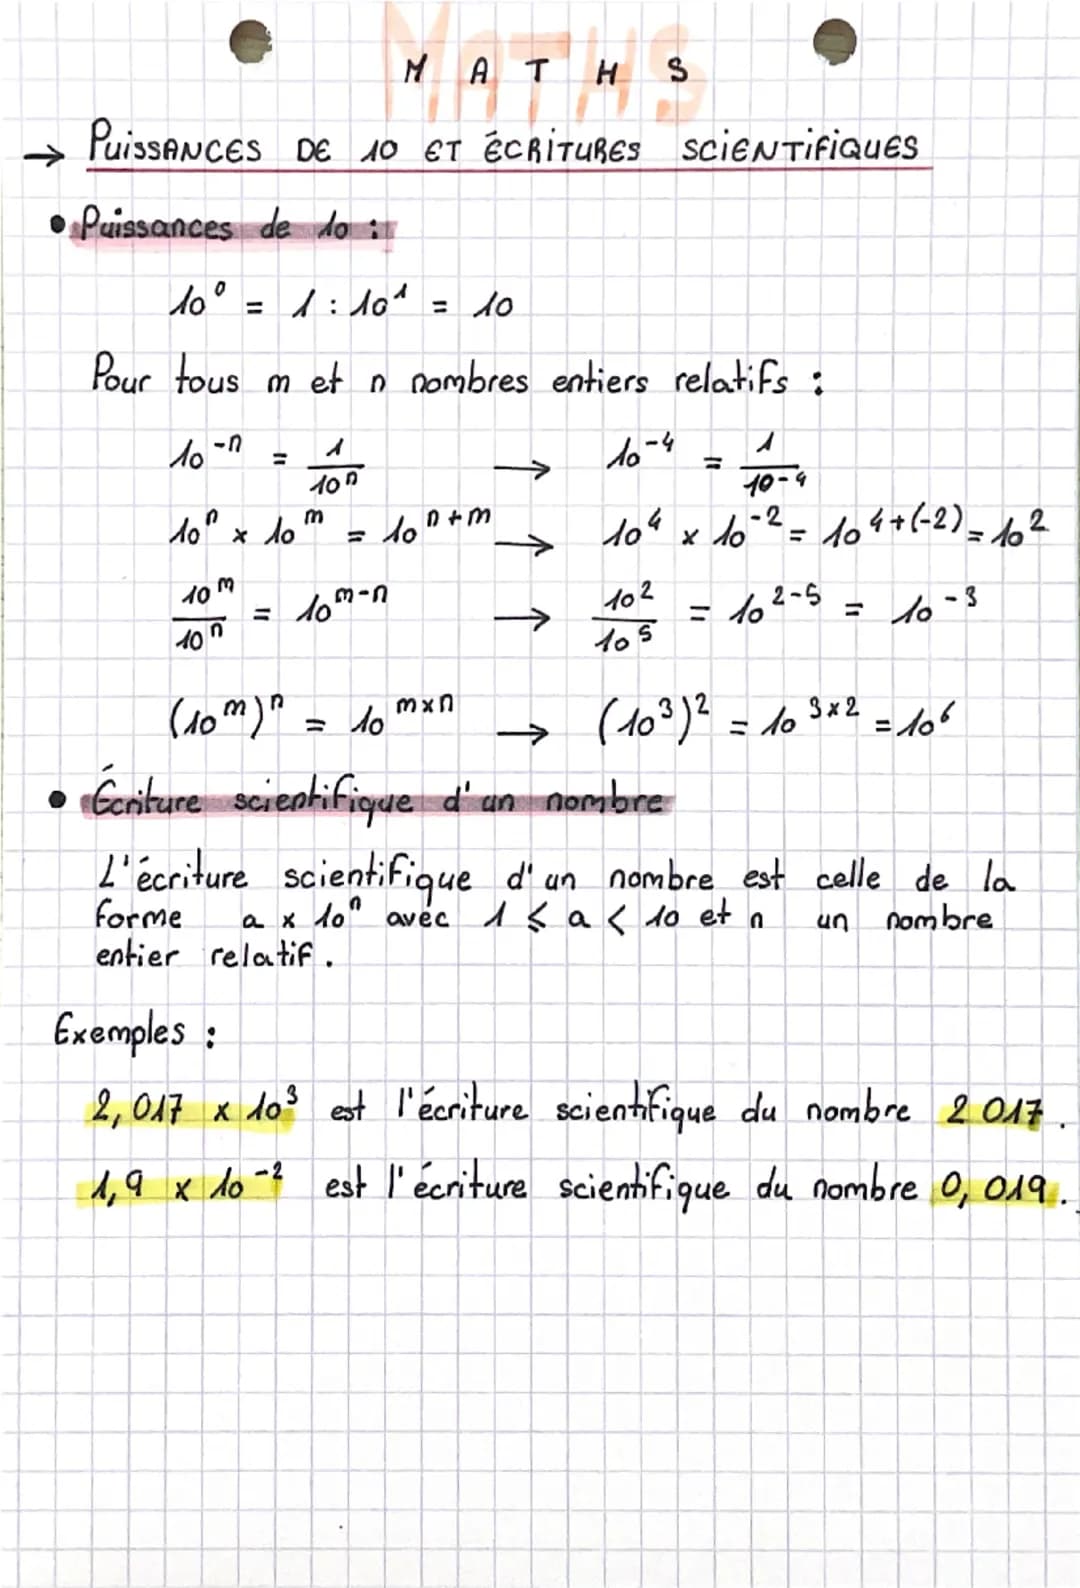 MATHS
M A T H S
→ PUISSANCES DE 10 ET ÉCRITURES SCIENTIFIQUES
• Puissances de 10 :
10⁰ = 1 : 10¹ = 10
Pour tous m et n nombres entiers relatifs :
10⁻ⁿ = 1/10ⁿ → 10⁻⁴ = 1/10⁻⁴
10ⁿ × 10ᵐ = 10ⁿ⁺ᵐ → 10⁴ × 10⁻² = 10⁴⁺⁽⁻²⁾ = 10²
10ᵐ/10ⁿ = 10ᵐ⁻ⁿ → 10²/10⁵ = 10²⁻⁵ = 10⁻³
(10ᵐ)ⁿ = 10ᵐˣⁿ → (10³)² = 10³ˣ² = 10⁶
• Écriture scientifique d'un nombre
L'écriture scientifique d'un nombre est celle de la
forme a × 10ⁿ avec 1 ⩽ a < 10 et n un nombre
entier relatif.
Exemples :
2,017 × 10³ est l'écriture scientifique du nombre 2 017.
1,9 × 10⁻² est l'écriture scientifique du nombre 0,019.